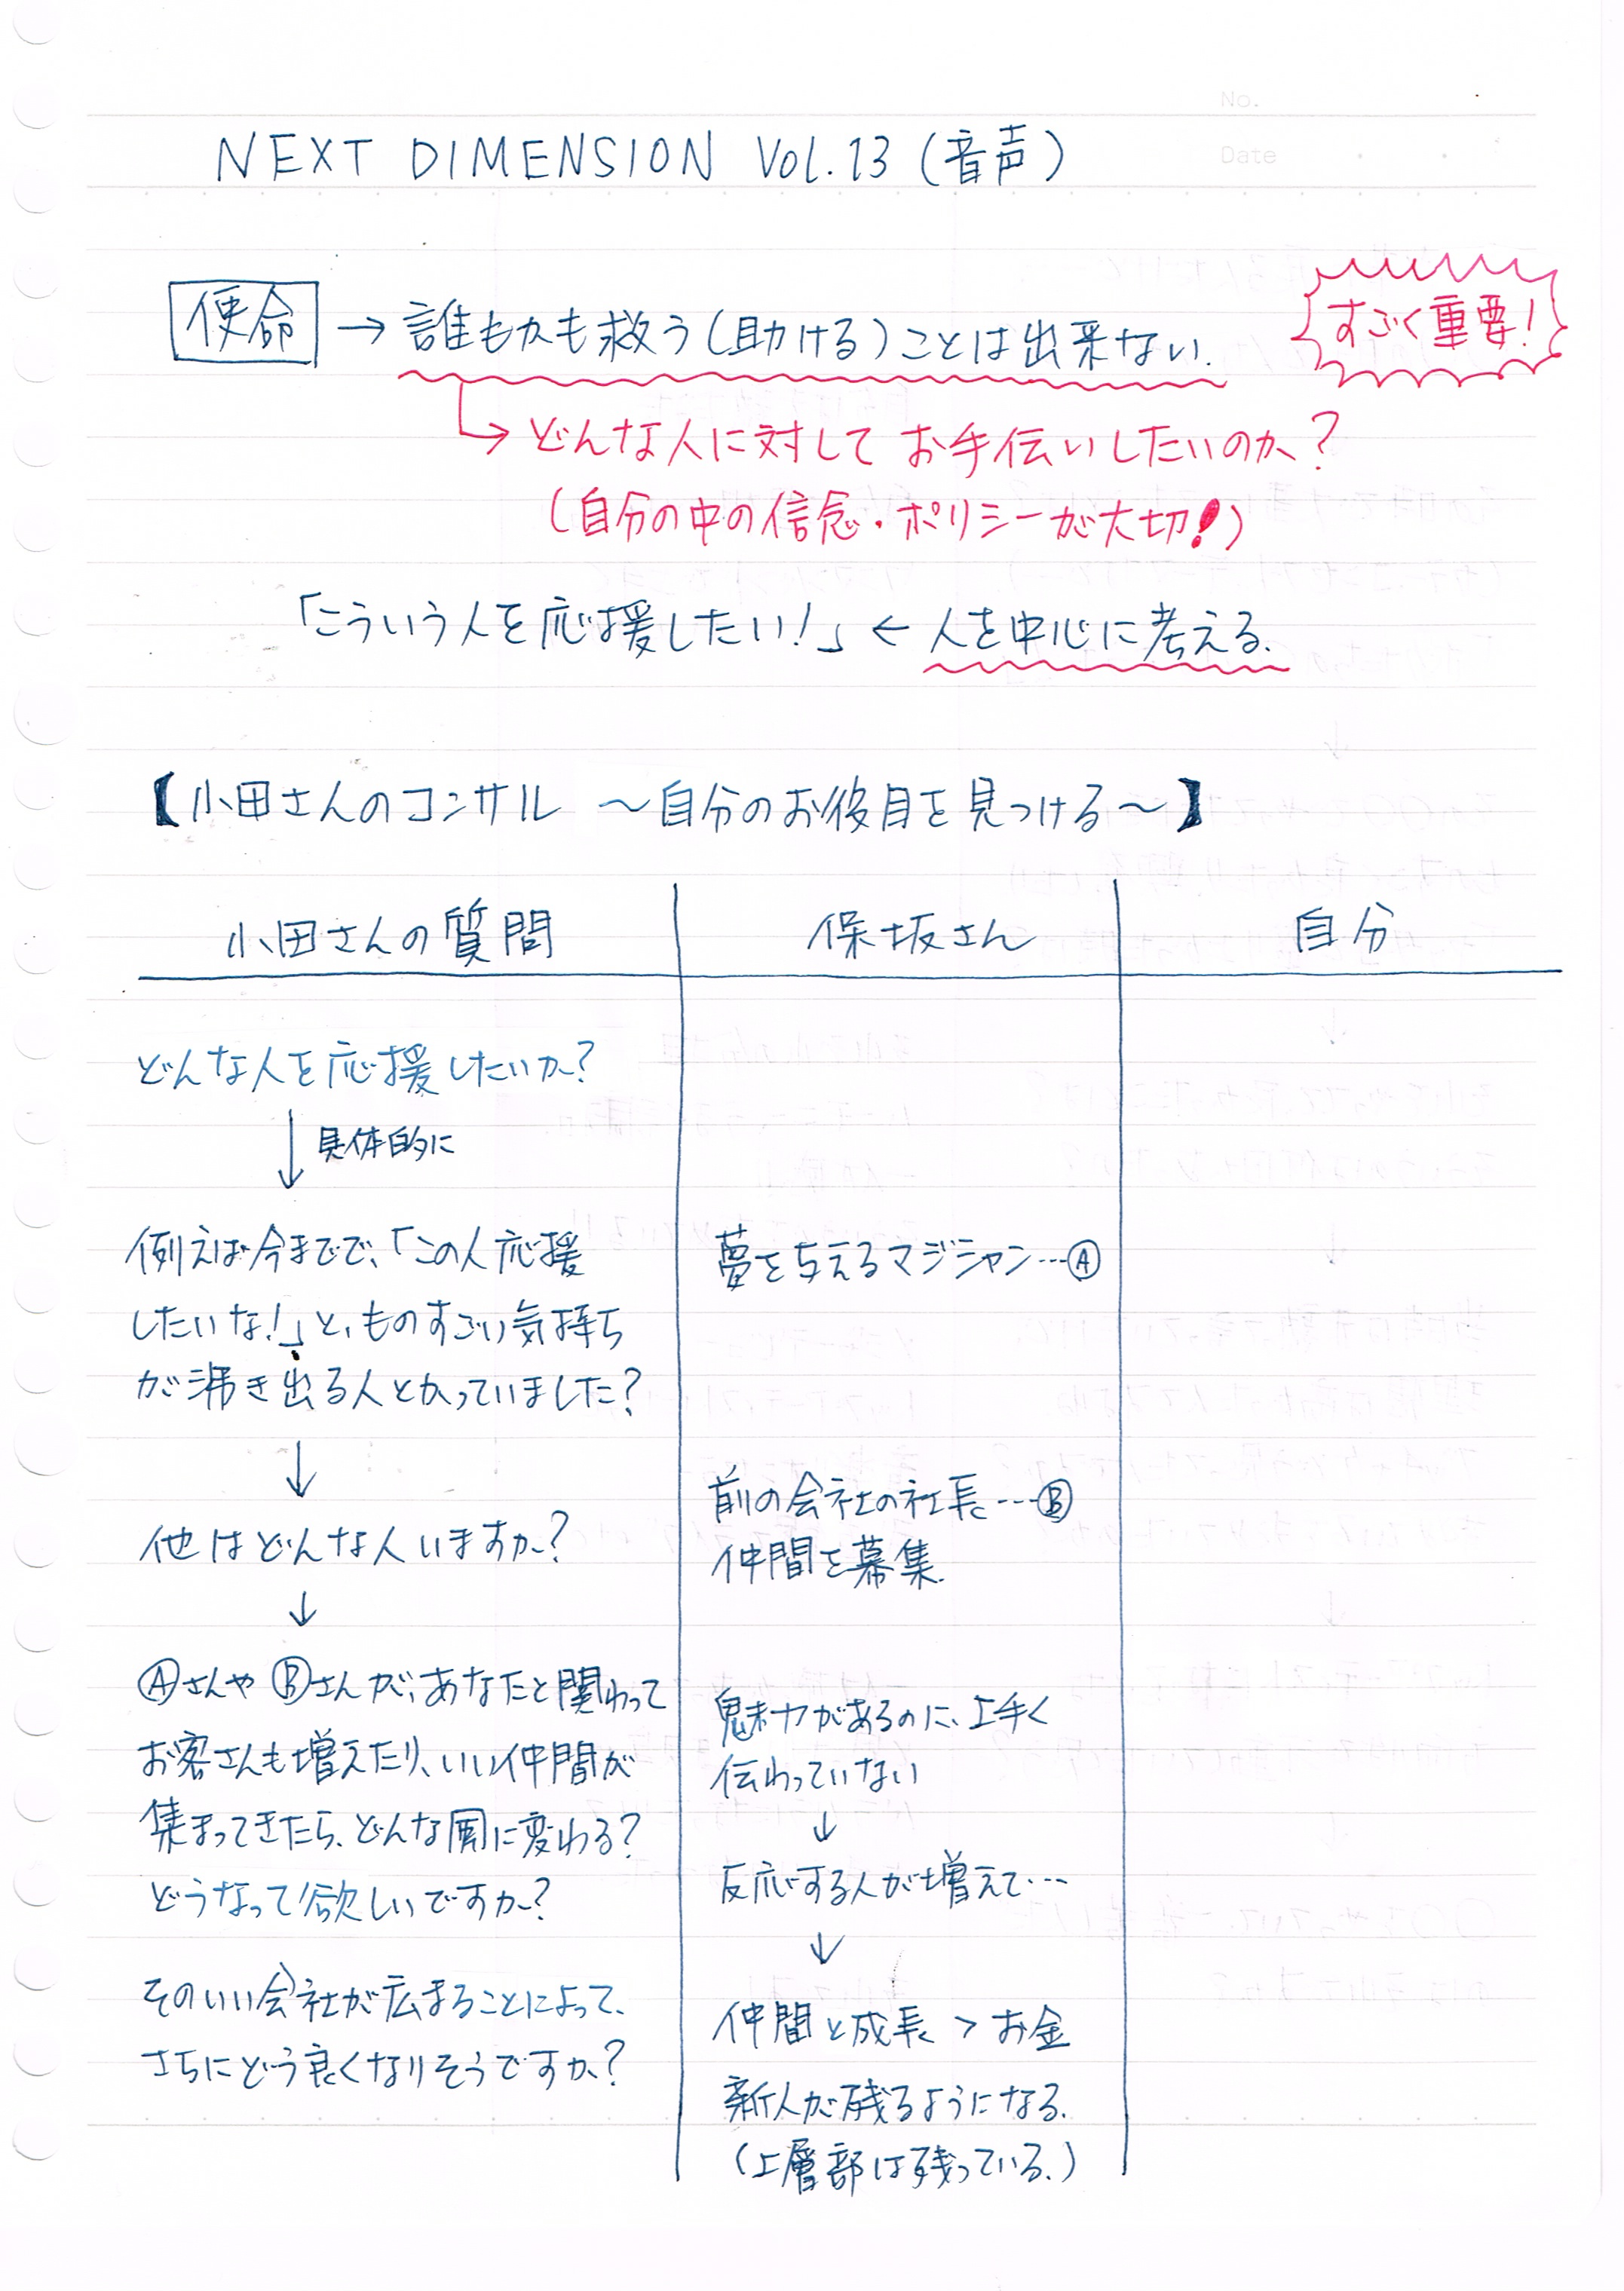 No.
Date
NEXT DIMENSION Vol.13 (音声)
使命 → 誰もカも救う(助ける)ことは出来ない.
すごく重要!
→ どんな人に対して お手伝いしたいのか?
(自分の中の信念・ポリシーが大切!)
「こういう人を応援したい!」 ← 人を中心に考える.
【小田さんのコンサル 〜自分のお役目を見つける〜】
小田さんの質問
保坂さん
自分
どんな人を応援したいか?
↓ 具体的に
例えば今までで、「この人応援
したいな!」と、ものすごい気持ち
が沸き出る人とかっていました?
↓
他はどんな人いますか?
↓
Ⓐさんや Ⓑさんが、あなたと関わって
お客さんも増えたり、いい仲間が
集まってきたら、どんな風に変わる?
どうなって欲しいですか?
そのいい会社が広まることによって、
さらにどう良くなりそうですか?
夢を与えるマジシャン…Ⓐ
前の会社の社長…Ⓑ
仲間を募集.
魅力があるのに、上手く
伝わっていない
↓
反応する人が増えて…
↓
仲間と成長 > お金
新人が残るようになる.
(上層部は残っている.)